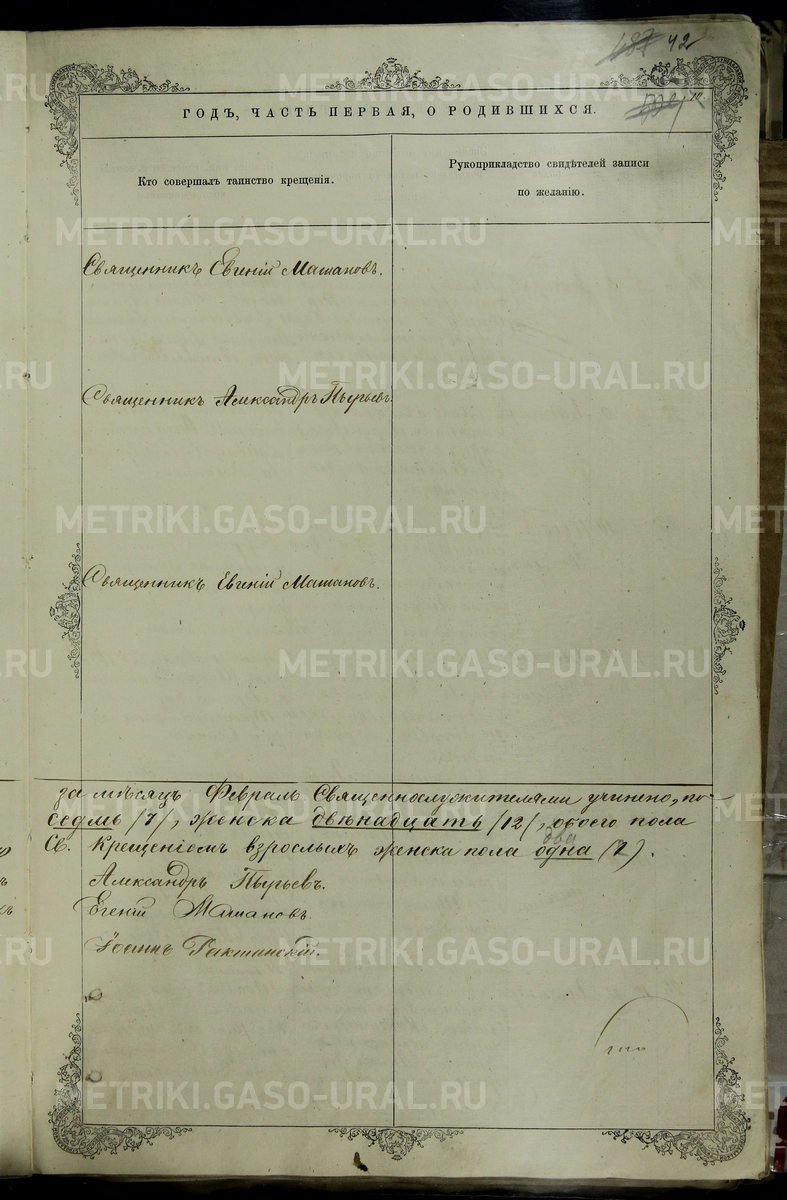 187 42
ГОДЪ, ЧАСТЬ ПЕРВАЯ, О РОДИВШИХСЯ.
Кто совершалъ таинство крещенія.
Рукоприкладство свидѣтелей записи
по желанію.
Священникъ Евгеній Машановъ.
Священникъ Александръ Пырьевъ
Священникъ Евгеній Машановъ.
за мѣсяцъ Февраль Священнослужителями учинено, по-
седмь /7/, женска двѣнадцать /12/, обоего пола
Св. Крещеніемъ взрослыхъ женска пола одна два (2).
Александръ Пырьевъ.
Евгеній Машановъ.
Іоаннъ
METRIKI.GASO-URAL.RU